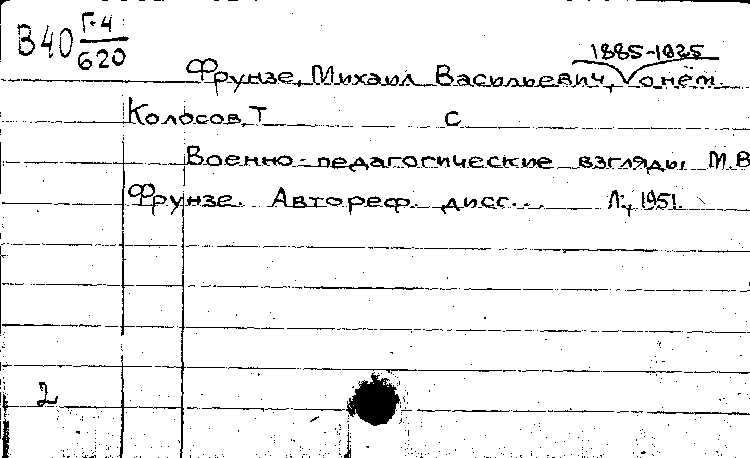 В40 Г-4/620
1885-1925
Фрунзе, Михаил Васильевич, о нём.
Колосов, Т С
Военно-педагогические взгляды М.В
Фрунзе. Автореф. дисс... Л., 1951.
2